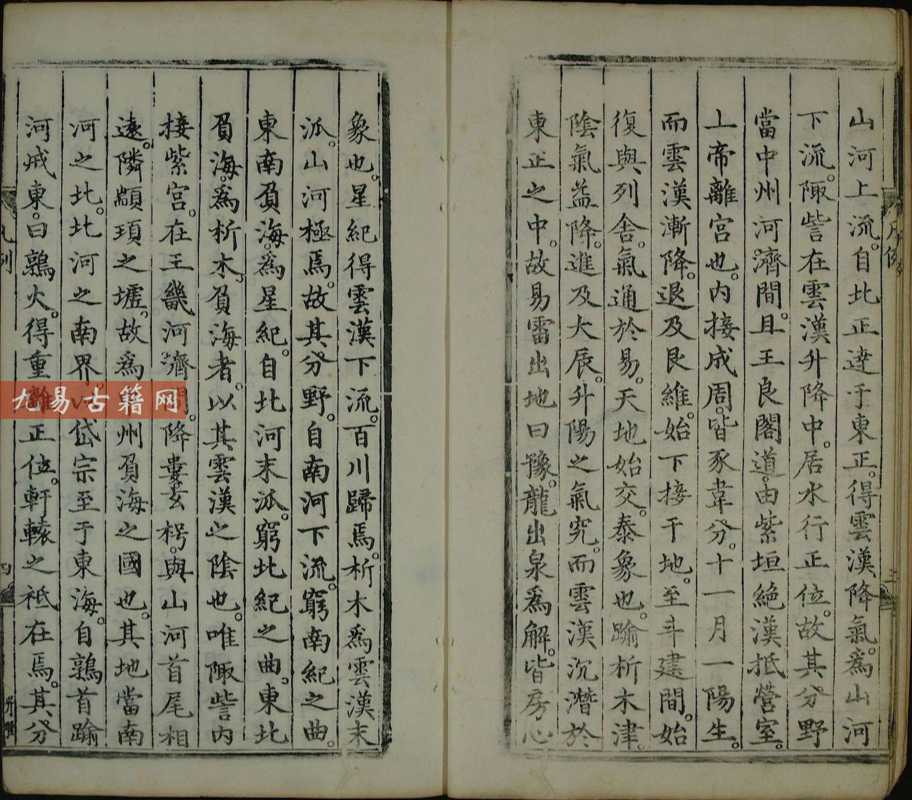 山河上流。自北正達于東正。得雲漢降氣。爲山河
下流。陬訾在雲漢升降中。居水行正位。故其分野
當中州河濟間。且王良閣道。由紫垣絶漢抵營室。
上帝離宮也。内接成周。皆豕韋分。十一月一陽生。
而雲漢漸降。退及艮維。始下接于地。至斗建間。始
復與列舍。氣通於易。天地始交。泰象也。踰析木津。
陰氣益降。進及大辰。升陽之氣究。而雲漢沉潛於
東正之中。故易雷出地曰豫。龍出泉爲解。皆房心
象也。星紀得雲漢下流。百川歸焉。析木爲雲漢末
泒。山河極焉。故其分野。自南河下流。窮南紀之曲。
東南負海。爲星紀。自北河末泒。窮北紀之曲。東北
負海。爲析木。負海者。以其雲漢之陰也。唯陬訾内
接紫宮。在王畿河濟間。降婁玄枵。與山河首尾相
遠。隣顓頊之墟。故爲 州負海之國也。其地當南
河之北。北河之南。界以岱宗至于東海。自鶉首踰
河戒東。曰鶉火。得重離正位。軒轅之祗在焉。其分
凡例
四
九易古籍网